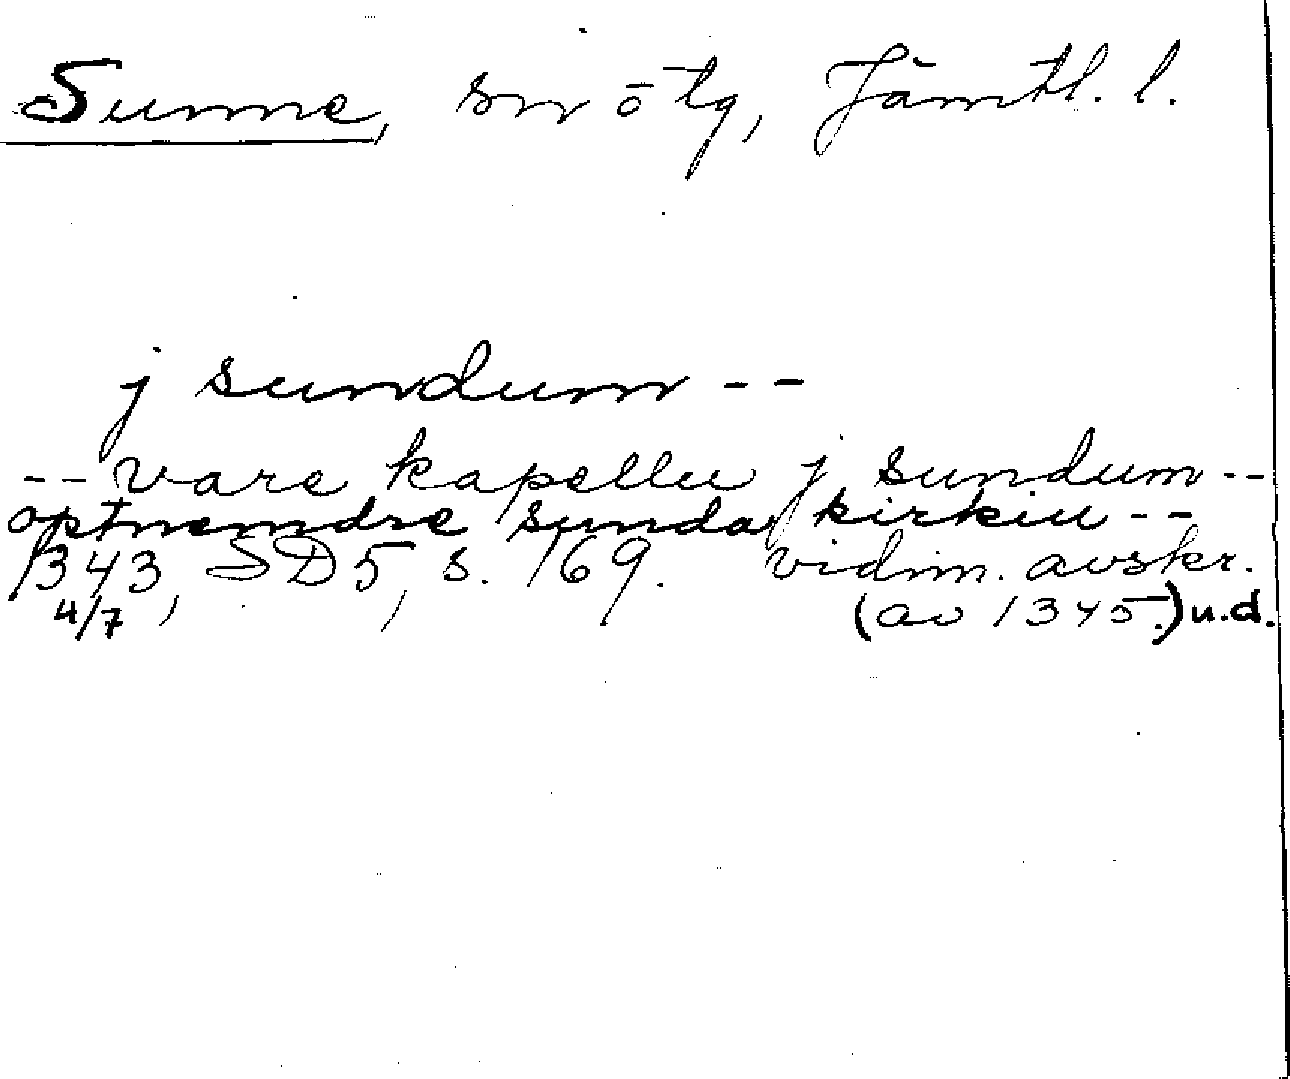 Sunne, sn o tg, Jämtl. l.
j sundum --
-- vare kapellu j sundum --
optnemdre sunda kirkiu --
1343, SD 5, s. 169. vidim. avskr.
4/7 (av 1345.) u.d.